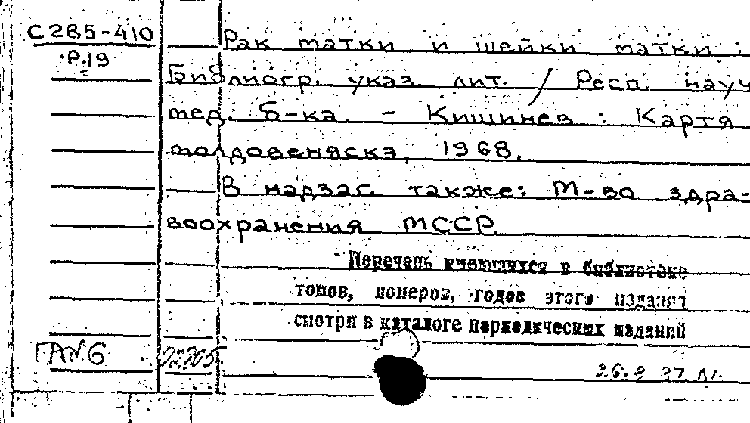 С285-410
Р.19
Рак матки и шейки матки :
Библиогр. указ. лит. / Респ. науч
мед. б-ка. - Кишинев : Картя
молдовеняскэ, 1968.
В надзаг. также: М-во здра-
воохранения МССР.
Перечень имеющихся в библиотеке
томов, номеров, годов этого издания
смотри в каталоге периодических изданий